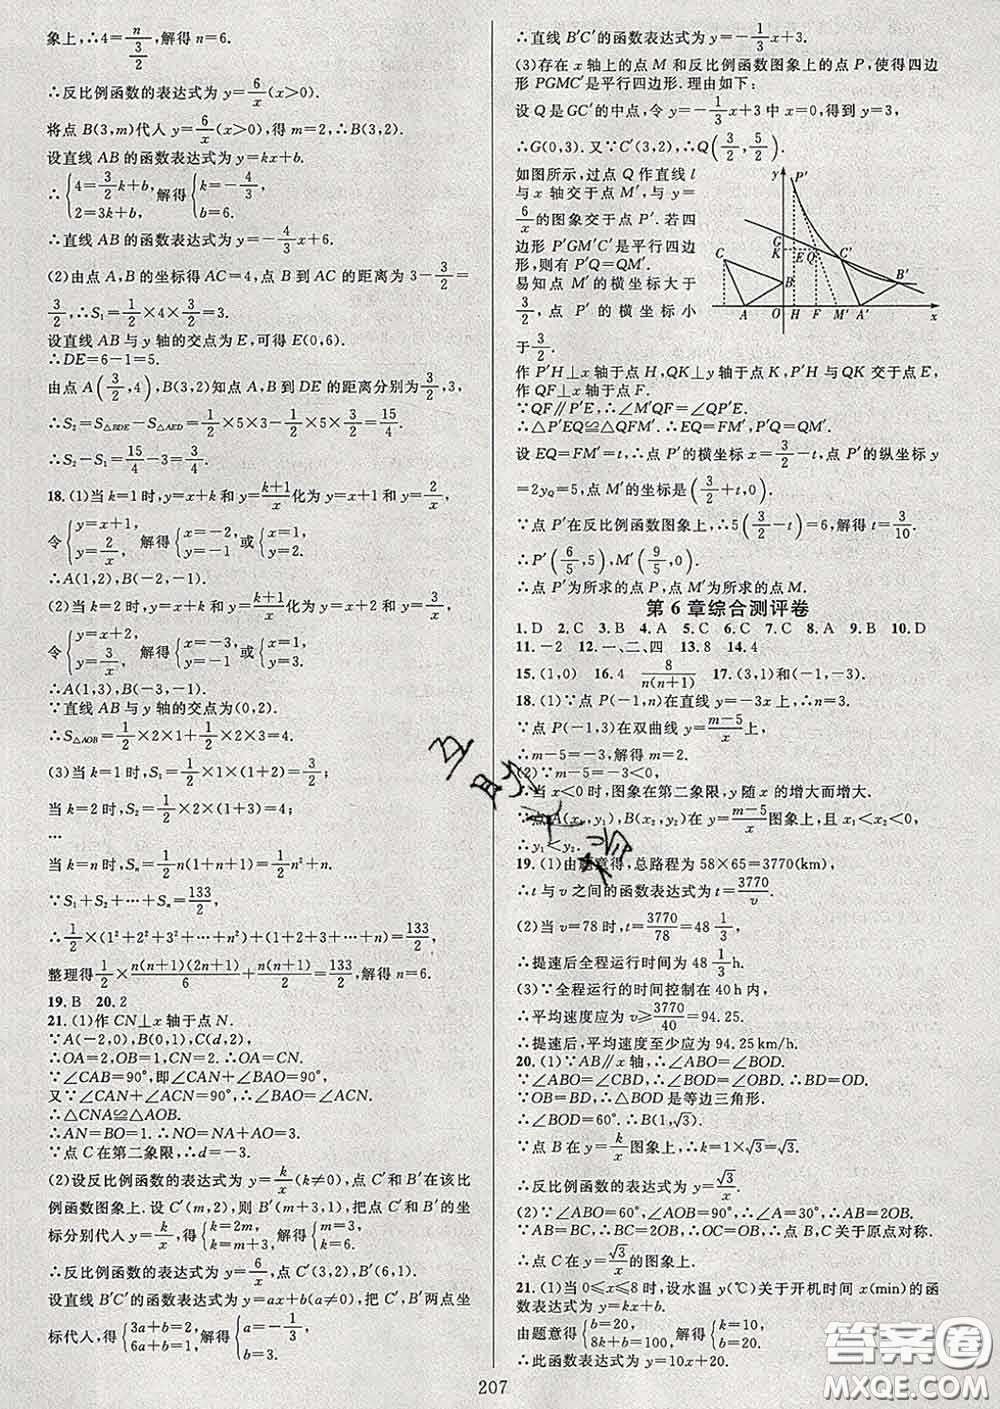 象上,∴4=n/(3/2),解得 n=6.
∴反比例函数的表达式为 y=6/x(x>0).
将点 B(3,m)代人 y=6/x(x>0),得 m=2,∴B(3,2).
设直线 AB 的函数表达式为 y=kx+b.
∴{4=3/2k+b, 2=3k+b, 解得{k=-4/3, b=6.
∴直线 AB 的函数表达式为 y=-4/3x+6.
(2)由点 A,B 的坐标得 AC=4,点 B 到 AC 的距离为 3-3/2=
3/2,∴S₁=1/2×4×3/2=3.
设直线 AB 与 y 轴的交点为 E,可得 E(0,6).
∴DE=6-1=5.
由点 A(3/2,4),B(3,2)知点 A,B 到 DE 的距离分别为3/2,3,
∴S₂=S△BDE-S△AED=1/2×5×3-1/2×5×3/2=15/4.
∴S₂-S₁=15/4-3=3/4.
18.(1)当 k=1 时,y=x+k 和 y=(k+1)/x化为 y=x+1 和 y=2/x,
令{y=x+1, y=2/x, 解得{x=-2, y=-1 或{x=1, y=2.
∴A(1,2),B(-2,-1).
(2)当 k=2 时,y=x+k 和 y=(k+1)/x化为 y=x+2 和 y=3/x,
令{y=x+2, y=3/x, 解得{x=-3, y=-1 或{x=1, y=3.
∴A(1,3),B(-3,-1).
∵直线 AB 与 y 轴的交点为(0,2).
∴S△AOB=1/2×2×1+1/2×2×3=4.
(3)当 k=1 时,S₁=1/2×1×(1+2)=3/2;
当 k=2 时,S₂=1/2×2×(1+3)=4;
…
当 k=n 时,Sₙ=1/2n(1+n+1)=1/2n²+n.
∵S₁+S₂+…+Sₙ=133/2,
∴1/2×(1²+2²+3²+…+n²)+(1+2+3+…+n)=133/2,
整理得1/2×n(n+1)(2n+1)/6+n(n+1)/2=133/2,解得 n=6.
19.B 20.2
21.(1)作 CN⊥x 轴于点 N.
∵A(-2,0),B(0,1),C(d,2),
∴OA=2,OB=1,CN=2.∴OA=CN.
∵∠CAB=90°,即∠CAN+∠BAO=90°,
又∵∠CAN+∠ACN=90°,∴∠BAO=∠ACN.
∴△CNA≌△AOB.
∴AN=BO=1.∴NO=NA+AO=3.
∵点 C 在第二象限,∴d=-3.
(2)设反比例函数的表达式为 y=k/x(k≠0),点 C′和 B′在该比
例函数图象上.设 C′(m,2),则 B′(m+3,1),把点 C′和 B′的坐
标分别代人 y=k/x,得{k=2m, k=m+3, 解得{m=3, k=6.
∴反比例函数的表达式为 y=6/x,点 C′(3,2),B′(6,1).
设直线 B′C′的函数表达式为 y=ax+b(a≠0),把 C′,B′两点坐
标代人,得{3a+b=2, 6a+b=1, 解得{a=-1/3, b=3.
∴直线 B′C′的函数表达式为 y=-1/3x+3.
(3)存在 x 轴上的点 M 和反比例函数图象上的点 P,使得四边
形 PGMC′是平行四边形.理由如下:
设 Q 是 GC′的中点,令 y=-1/3x+3 中 x=0,得到 y=3,
∴G(0,3).又∵C′(3,2),∴Q(3/2,5/2).
如图所示,过点 Q 作直线 l
与 x 轴交于点 M′,与 y=
6/x的图象交于点 P′.若四
边形 P′GM′C′是平行四边
形,则有 P′Q=QM′.
易知点 M′的横坐标大于
3/2,点 P′的横坐标小
于3/2.
P′ G C K E Q C′ B B′ A O H F M′ A′ x
作 P′H⊥x 轴于点 H,QK⊥y 轴于点 K,P′H 与 QK 交于点 E,
作 QF⊥x 轴于点 F.
∵QF∥P′E,∴∠M′QF=∠QP′E.
∴△P′EQ≌△QFM′.∴EQ=FM′.
设 EQ=FM′=t,∴点 P′的横坐标 x=3/2-t,点 P′的纵坐标 y
=2yQ=5,点 M′的坐标是(3/2+t,0).
∵点 P′在反比例函数图象上,∴5(3/2-t)=6,解得 t=3/10.
∴P′(6/5,5),M′(9/5,0).
∴点 P′为所求的点 P,点 M′为所求的点 M.
第 6 章综合测评卷
1.D 2.C 3.B 4.A 5.C 6.C 7.C 8.A 9.B 10.D
11.-2 12.一、二、四 13.8 14.4
15.(1,0) 16.4 8/n(n+1) 17.(3,1)和(-1,-3).
18.(1)∵点 P(-1,n)在直线 y=-3x 上,∴n=3.
∵点 P(-1,3)在双曲线 y=(m-5)/x上,
∴m-5=-3,解得 m=2.
(2)∵m-5=-3<0,
∴当 x<0 时,图象在第二象限,y 随 x 的增大而增大.
∵点 A(x₁,y₁),B(x₂,y₂)在 y=(m-5)/x图象上,且 x₁<x₂<0,
∴y₁<y₂.
19.(1)由题意得,总路程为 58×65=3770(km),
∴t 与 v 之间的函数表达式为 t=3770/v.
(2)当 v=78 时,t=3770/78=48 1/3,
∴提速后全程运行时间为 48 1/3h.
(3)∵全程运行的时间控制在 40 h 内,
∴平均速度应为 v≥3770/40=94.25.
∴提速后,平均速度至少应为 94.25 km/h.
20.(1)∵AB∥x 轴,∴∠ABO=∠BOD.
∵∠ABO=∠CBD,∴∠BOD=∠OBD.∴DB=DO.
∵OB=BD,∴△BOD 是等边三角形.
∴∠BOD=60°.∴B(1,√3).
∵点 B 在 y=k/x图象上,∴k=1×√3=√3.
∴反比例函数的表达式为 y=√3/x.
(2)∵∠ABO=60°,∠AOB=90°,∴∠A=30°,∴AB=2OB.
∵AB=BC,∴BC=2OB.∴OC=OB,∴点 B,C 关于原点对称.
∴点 C 在 y=√3/x的图象上.
21.(1)当 0≤x≤8 时,设水温 y(℃)关于开机时间 x(min)的函
数表达式为 y=kx+b.
由题意得{b=20, 8k+b=100, 解得{k=10, b=20.
∴此函数表达式为 y=10x+20.
207
答案圈
MXQE.COM